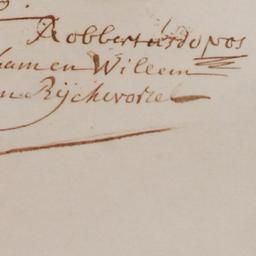 Robbert
amen Willem
n Rijckevorsel